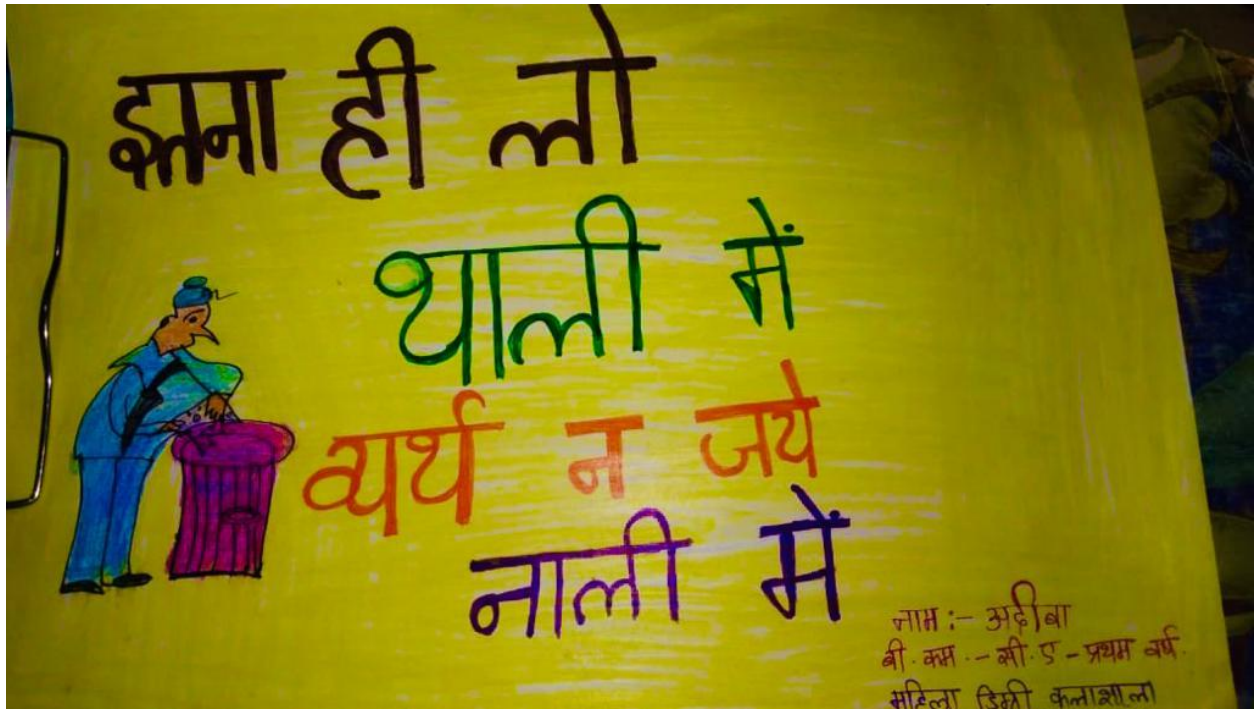 इतना ही लो
थाली में
व्यर्थ न जये
नाली में
नाम :- अदीबा
बी. कम. - सी. ए - प्रथम वर्ष.
महिला डिग्री कलाशाला